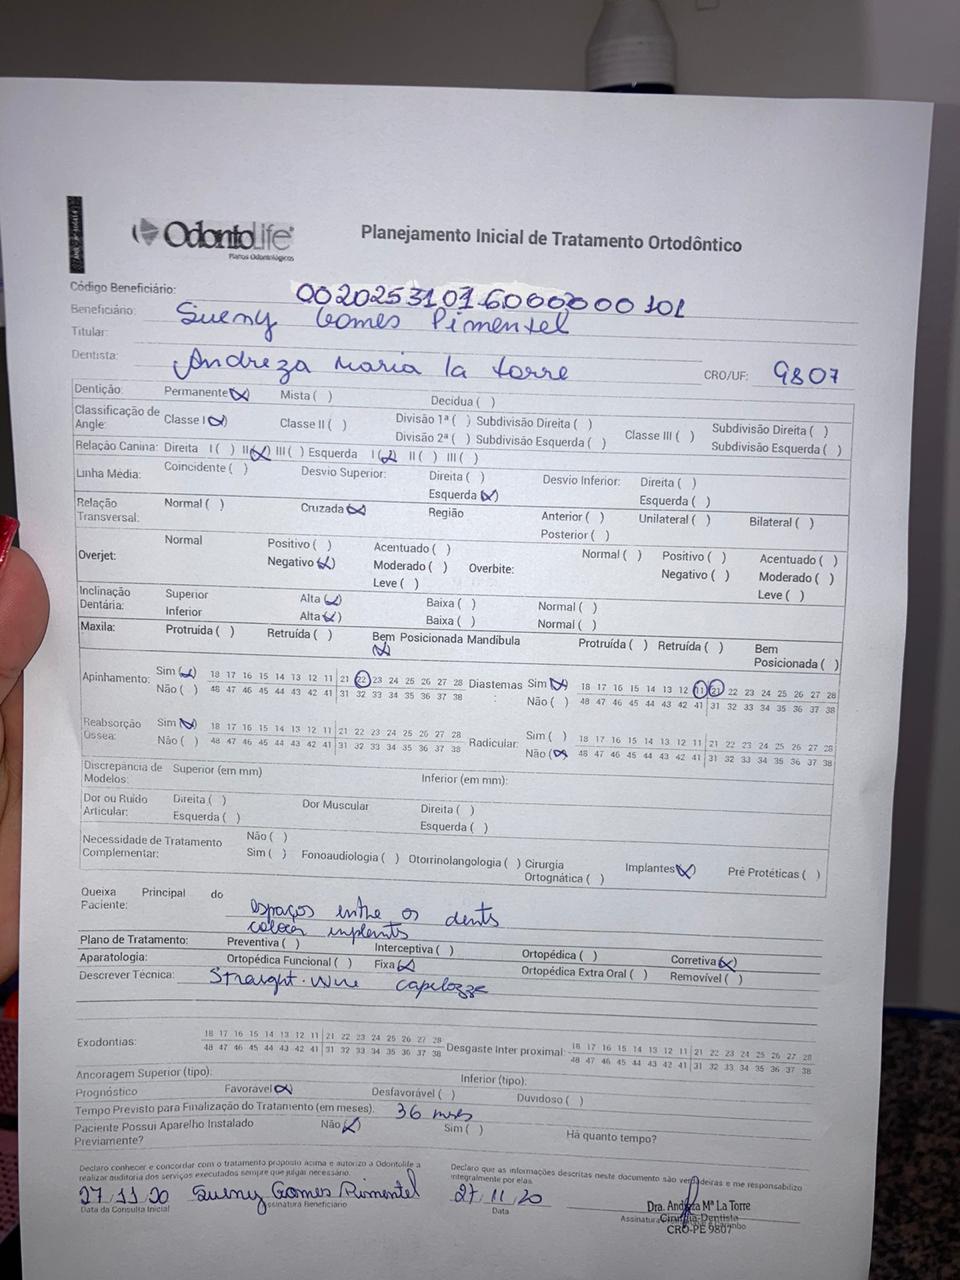 OdontoLife
Planos Odontológicos
Planejamento Inicial de Tratamento Ortodôntico
Código Beneficiário: 00202531016000000101
Beneficiário: Sueny Gomes Pimentel
Titular:
Dentista: Andreza Maria la torre CRO/UF: 9807
Dentição: Permanente (X) Mista ( ) Decídua ( )
Classificação de Angle: Classe I (X) Classe II ( ) Divisão 1ª ( ) Subdivisão Direita ( ) Classe III ( ) Subdivisão Direita ( )
Divisão 2ª ( ) Subdivisão Esquerda ( ) Subdivisão Esquerda ( )
Relação Canina: Direita I ( ) II (X) III ( ) Esquerda I (X) II ( ) III ( )
Linha Média: Coincidente ( ) Desvio Superior: Direita ( ) Desvio Inferior: Direita ( )
Esquerda (X) Esquerda ( )
Relação Transversal: Normal ( ) Cruzada (X) Região Anterior ( ) Unilateral ( ) Bilateral ( )
Posterior ( )
Overjet: Normal Positivo ( ) Acentuado ( ) Overbite: Normal ( ) Positivo ( ) Acentuado ( )
Negativo (X) Moderado ( ) Negativo ( ) Moderado ( )
Leve ( ) Leve ( )
Inclinação Dentária: Superior Alta (X) Baixa ( ) Normal ( )
Inferior Alta (X) Baixa ( ) Normal ( )
Maxila: Protruída ( ) Retruída ( ) Bem Posicionada (X) Mandíbula Protruída ( ) Retruída ( ) Bem Posicionada ( )
Apinhamento: Sim (X) 18 17 16 15 14 13 12 11 21 22 23 24 25 26 27 28 Diastemas Sim (X) 18 17 16 15 14 13 12 11 21 22 23 24 25 26 27 28
Não ( ) 48 47 46 45 44 43 42 41 31 32 33 34 35 36 37 38 Não ( ) 48 47 46 45 44 43 42 41 31 32 33 34 35 36 37 38
Reabsorção Óssea: Sim (X) 18 17 16 15 14 13 12 11 21 22 23 24 25 26 27 28 Radicular: Sim ( ) 18 17 16 15 14 13 12 11 21 22 23 24 25 26 27 28
Não ( ) 48 47 46 45 44 43 42 41 31 32 33 34 35 36 37 38 Não (X) 48 47 46 45 44 43 42 41 31 32 33 34 35 36 37 38
Discrepância de Modelos: Superior (em mm) Inferior (em mm):
Dor ou Ruído Articular: Direita ( ) Dor Muscular Direita ( )
Esquerda ( ) Esquerda ( )
Necessidade de Tratamento Complementar: Não ( )
Sim ( ) Fonoaudiologia ( ) Otorrinolangologia ( ) Cirurgia Ortognática ( ) Implantes (X) Pré Protéticas ( )
Queixa Principal do Paciente: espaços entre os dents
colocar implants
Plano de Tratamento: Preventiva ( ) Interceptiva ( ) Ortopédica ( ) Corretiva (X)
Aparatologia: Ortopédica Funcional ( ) Fixa (X) Ortopédica Extra Oral ( ) Removível ( )
Descrever Técnica: Straight-Wire capelozze
Exodontias: 18 17 16 15 14 13 12 11 21 22 23 24 25 26 27 28 Desgaste Inter proximal: 18 17 16 15 14 13 12 11 21 22 23 24 25 26 27 28
48 47 46 45 44 43 42 41 31 32 33 34 35 36 37 38 48 47 46 45 44 43 42 41 31 32 33 34 35 36 37 38
Ancoragem Superior (tipo): Inferior (tipo):
Prognóstico Favorável (X) Desfavorável ( ) Duvidoso ( )
Tempo Previsto para Finalização do Tratamento (em meses): 36 mses
Paciente Possui Aparelho Instalado Previamente? Não (X) Sim ( ) Há quanto tempo?
Declaro conhecer e concordar com o tratamento proposto acima e autorizo a Odontolife a
realizar auditoria dos serviços executados sempre que julgar necessário.
Declaro que as informações descritas neste documento são verdadeiras e me responsabilizo
integralmente por elas.
27 11 20 Sueny Gomes Pimentel 27 11 20
Data da Consulta Inicial Assinatura Beneficiário Data
Dra. Andreza Mª La Torre
Assinatura
Cirurgiã-Dentista
CRO-PE 9807